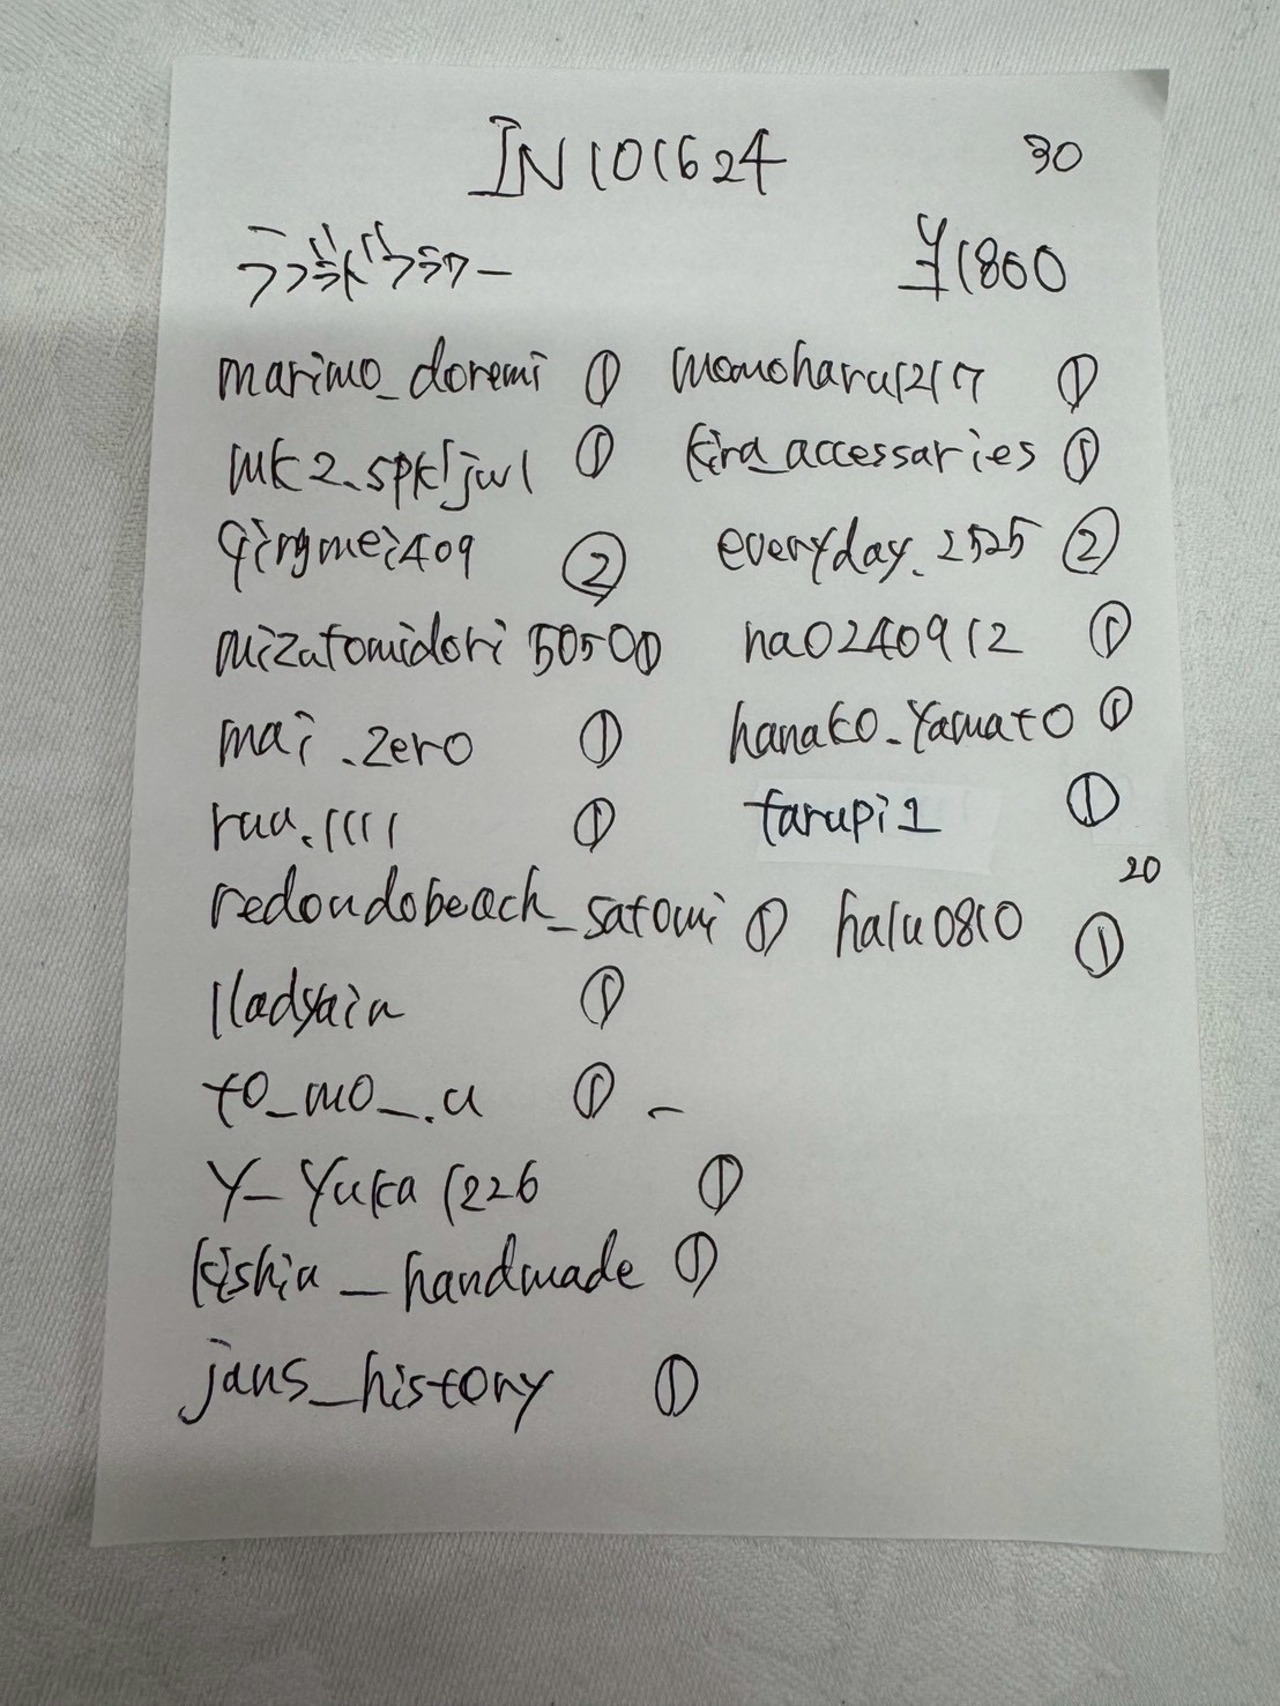 IN101624 30
¥1800
marimo_doremi ① momoharu1217 ①
mk2_spkljwl ① kira_accessaries ①
qingmei409 ② everyday_2525 ②
mizutomidori5050 ① na0240912 ①
mai.zero ① hanako_yamato ①
ruu.1111 ① tarupi1 ①
20
redondobeach_satomi ① halu0810 ①
①
to_mo_.u ① –
Y_Yuka1226 ①
kishiu_handmade ①
jans_history ①